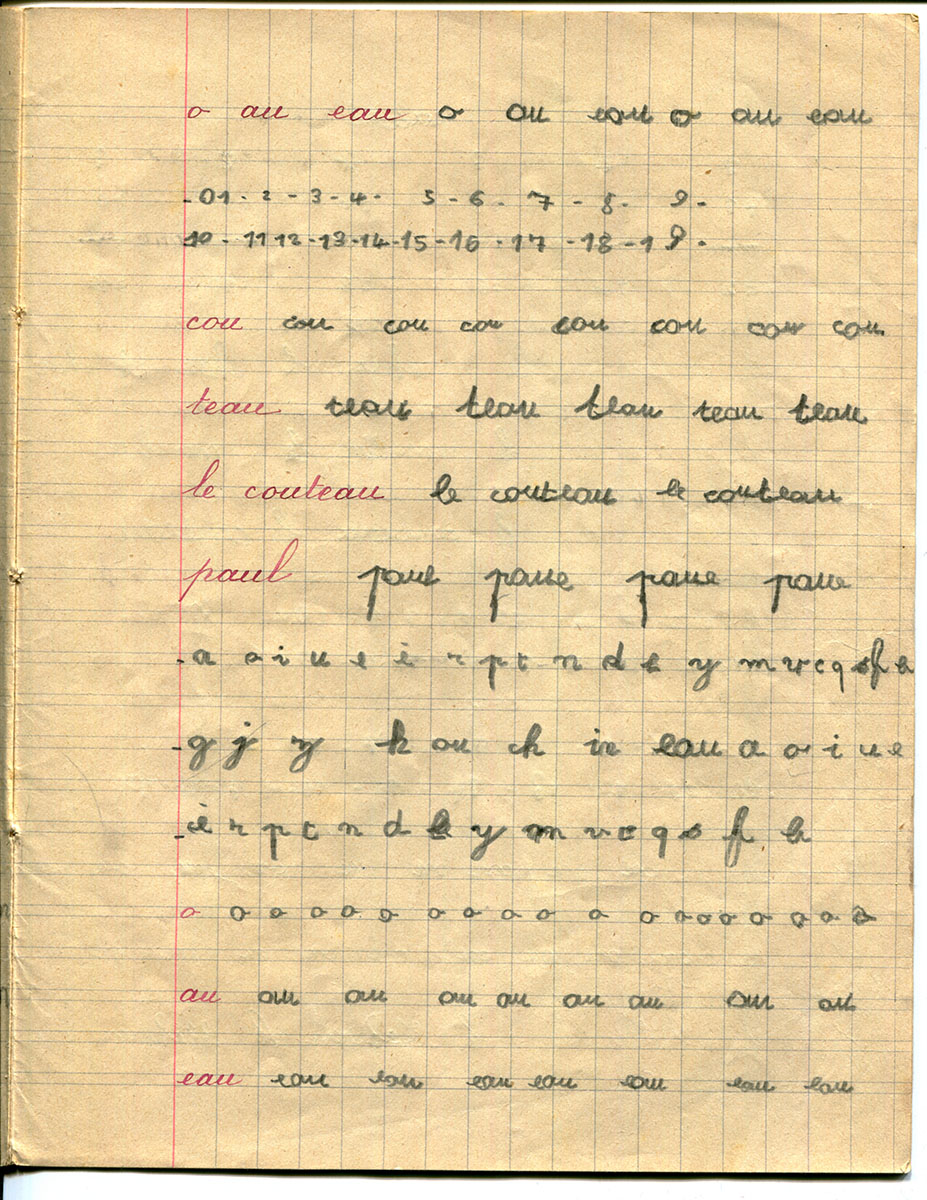 o au eau o au eau o au eau
-01-2-3-4- 5-6-7-8-9-
10-11 12-13-14-15-16-17-18-19-
cou cou cou cou cou cou cou cou
teau teau teau teau teau teau
le couteau le couteau le couteau
paul paul paule paule paule
-a o i u e è r p t n d l y m v c q s f b
-g j z k ou ch in eau a o i u e
-è r p t n d l y m v c q s f b
o o o o o o o o o o o o o o o o o o o
au au au au au au au au au
eau eau eau eau eau eau eau eau